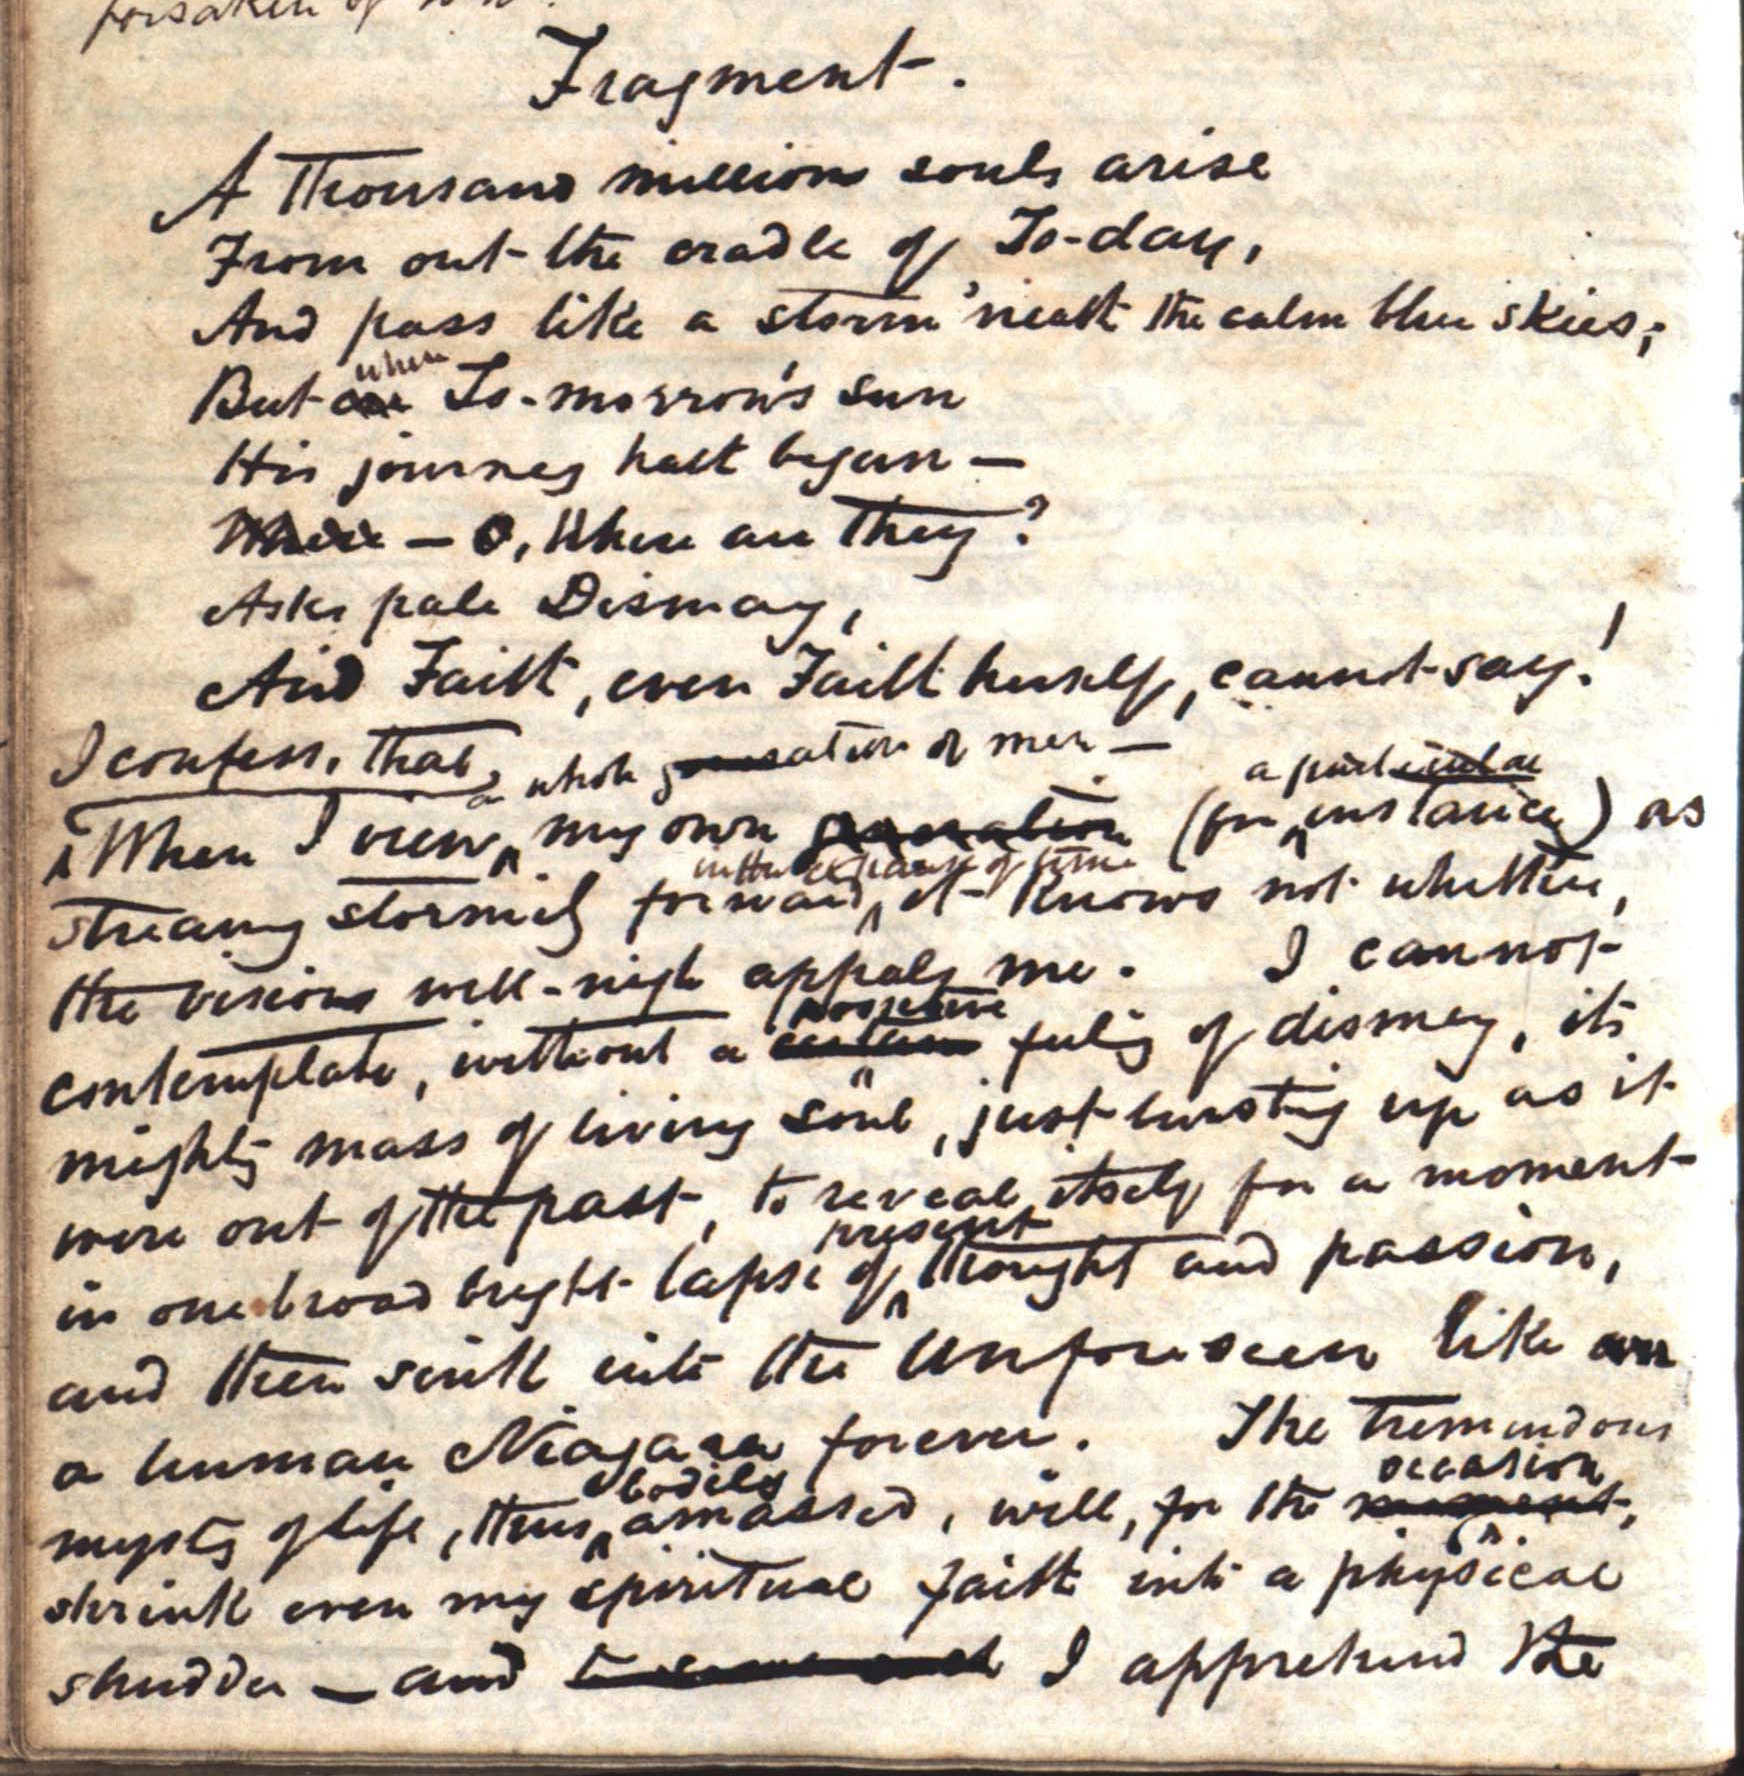 forsaken of
Fragment.
A thousand million souls arise
From out the cradle of To-day,
And pass like a storm 'neath the calm blue skies;
when
But ere To-morrow's sun
His journey hath begun —
Where — O, Where are They?
Asks pale Dismay,
And Faith, even Faith herself, cannot say!
I confess, that,
a whole generation of men —
a particular
When I view my own generation (for instance) as
in the expanse of time
streaming stormily forward, it knows not whither,
the vision well-nigh appals me. I cannot
contemplate, without a certain feeling of dismay, its
mighty mass of living soul, just bursting up as it
were out of the past, to reveal itself for a moment
present
in one broad bright lapse of thought and passion,
and then sink into the Unforeseen like
a human Niagara forever. The tremendous
bodily
occasion
mystery of life, thus amassed, will, for the moment,
shrink even my spiritual faith into a physical
shudder — and I apprehend the